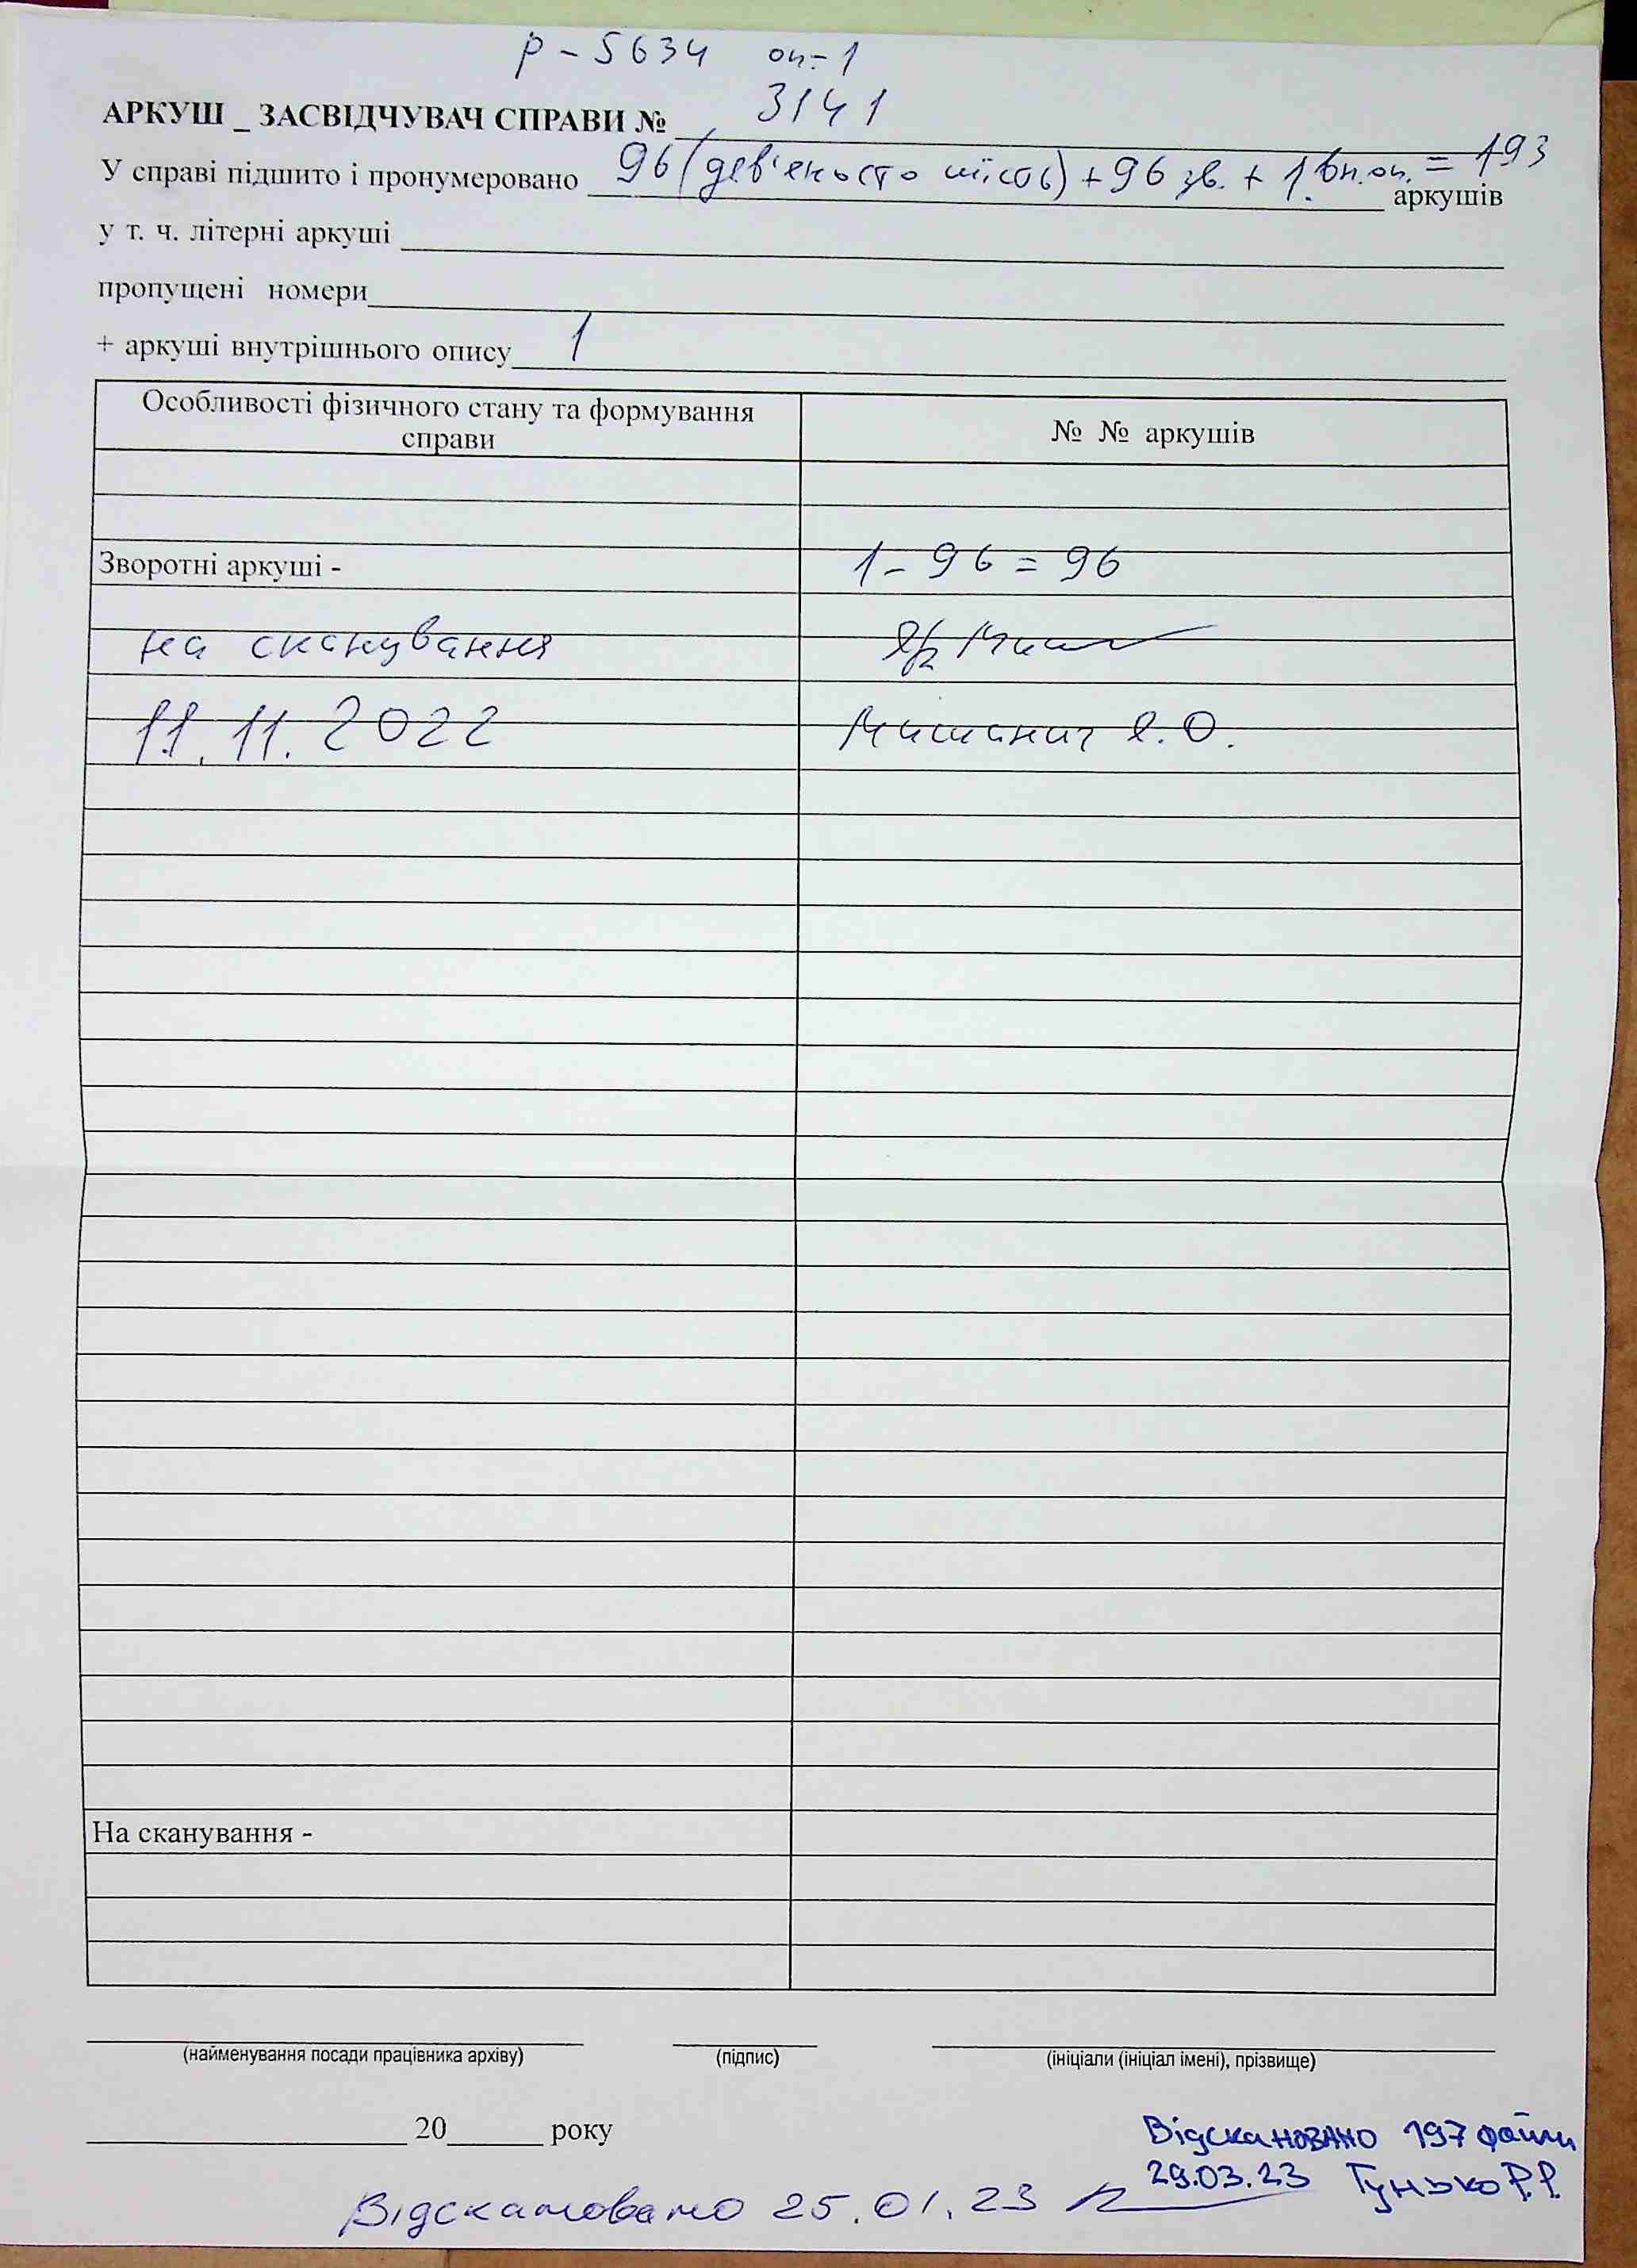 Р - 5634 оп-1
АРКУШ _ ЗАСВІДЧУВАЧ СПРАВИ № 3141
У справі підшито і пронумеровано 96 (дев'яносто шість) + 96 зв. + 1 вн.оп. = 193 аркушів
у т. ч. літерні аркуші
пропущені номери
+ аркуші внутрішнього опису 1
Особливості фізичного стану та формування справи
№ № аркушів
Зворотні аркуші - 1 - 96 = 96
на сканування
11.11.2022
На сканування -
(найменування посади працівника архіву) (підпис) (ініціали (ініціал імені), прізвище)
20 року
Відскановано 197 файли
29.03.23 Гунько Р.Р.
Відскановано 25.01.23